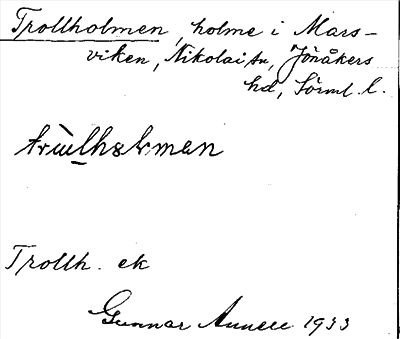 Trollholmen, holme i Mars-
viken, Nikolai sn, Jönåkers
hd, Sörml. l.
Trollh. ek
Gunnar Annell 1933